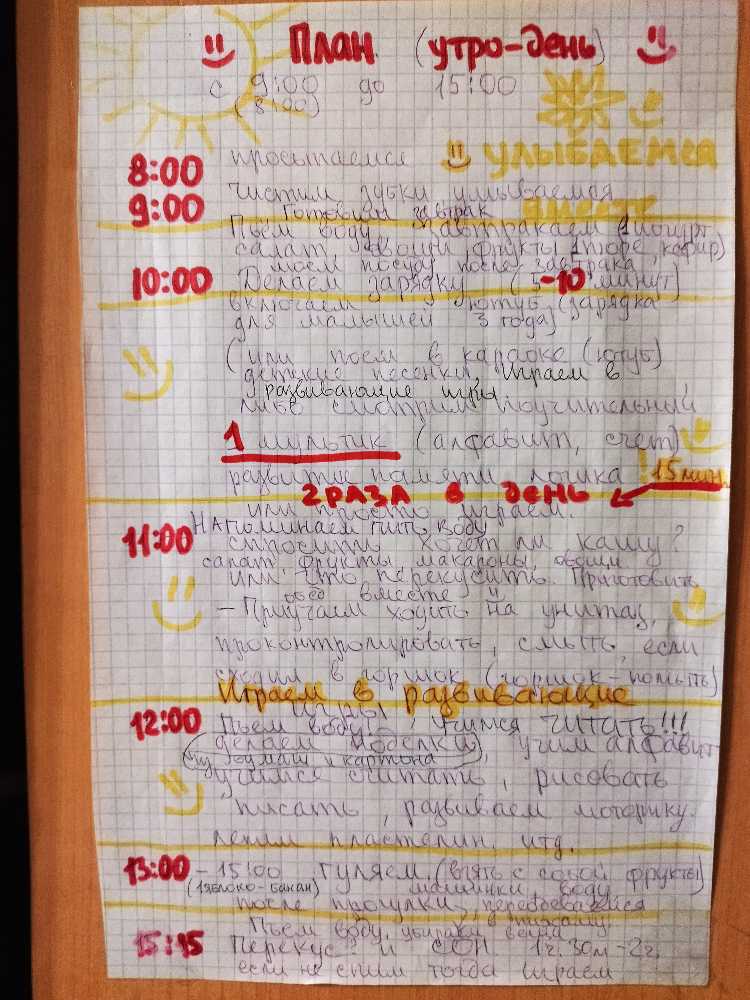 План (утро-день)
с 9:00 до 15:00
(8:00)
8:00 просыпаемся улыбаемся
чистим зубки умываемся
9:00 Готовим завтрак вместе
Пьём воду завтракаем (1 йогурт
салат, овощи, фрукты 1 пюре, кефир)
моем посуду после завтрака
10:00 Делаем зарядку (5-10 минут)
включаем ютуб (зарядка
для малышей 3 года)
(или поем в караоке (ютуб)
детские песенки, Играем в
развивающие игры.
либо смотрим поучительный
1 мультик (алфавит, счет)
развитие памяти логика 15 мин.
2 РАЗА в день
или просто играем.
Напоминаем пить воду
11:00 спросить хочет ли кашу?
салат, фрукты, макароны, овощи
или что перекусить. Приготовить
обед вместе
- Приучаем ходить на унитаз,
проконтролировать, смыть, если
сходил в горшок (горшок - помыть)
Играем в развивающие
игры
12:00 Пьем воду! Учимся ЧИТАТЬ!!!
(делаем поделки), учим алфавит
из бумаги и картона
учимся считать, рисовать
писать, развиваем моторику.
лепим пластелин. итд.
13:00 - 15:00 гуляем. (взять с собой фрукты)
(1 яблоко-банан) машинки, воду
после прогулки, переодеваемся
в пижаму
Пьем воду, убираем вещи
15:15 Перекус и СОН 1ч.30м-2ч.
если не спим тогда играем